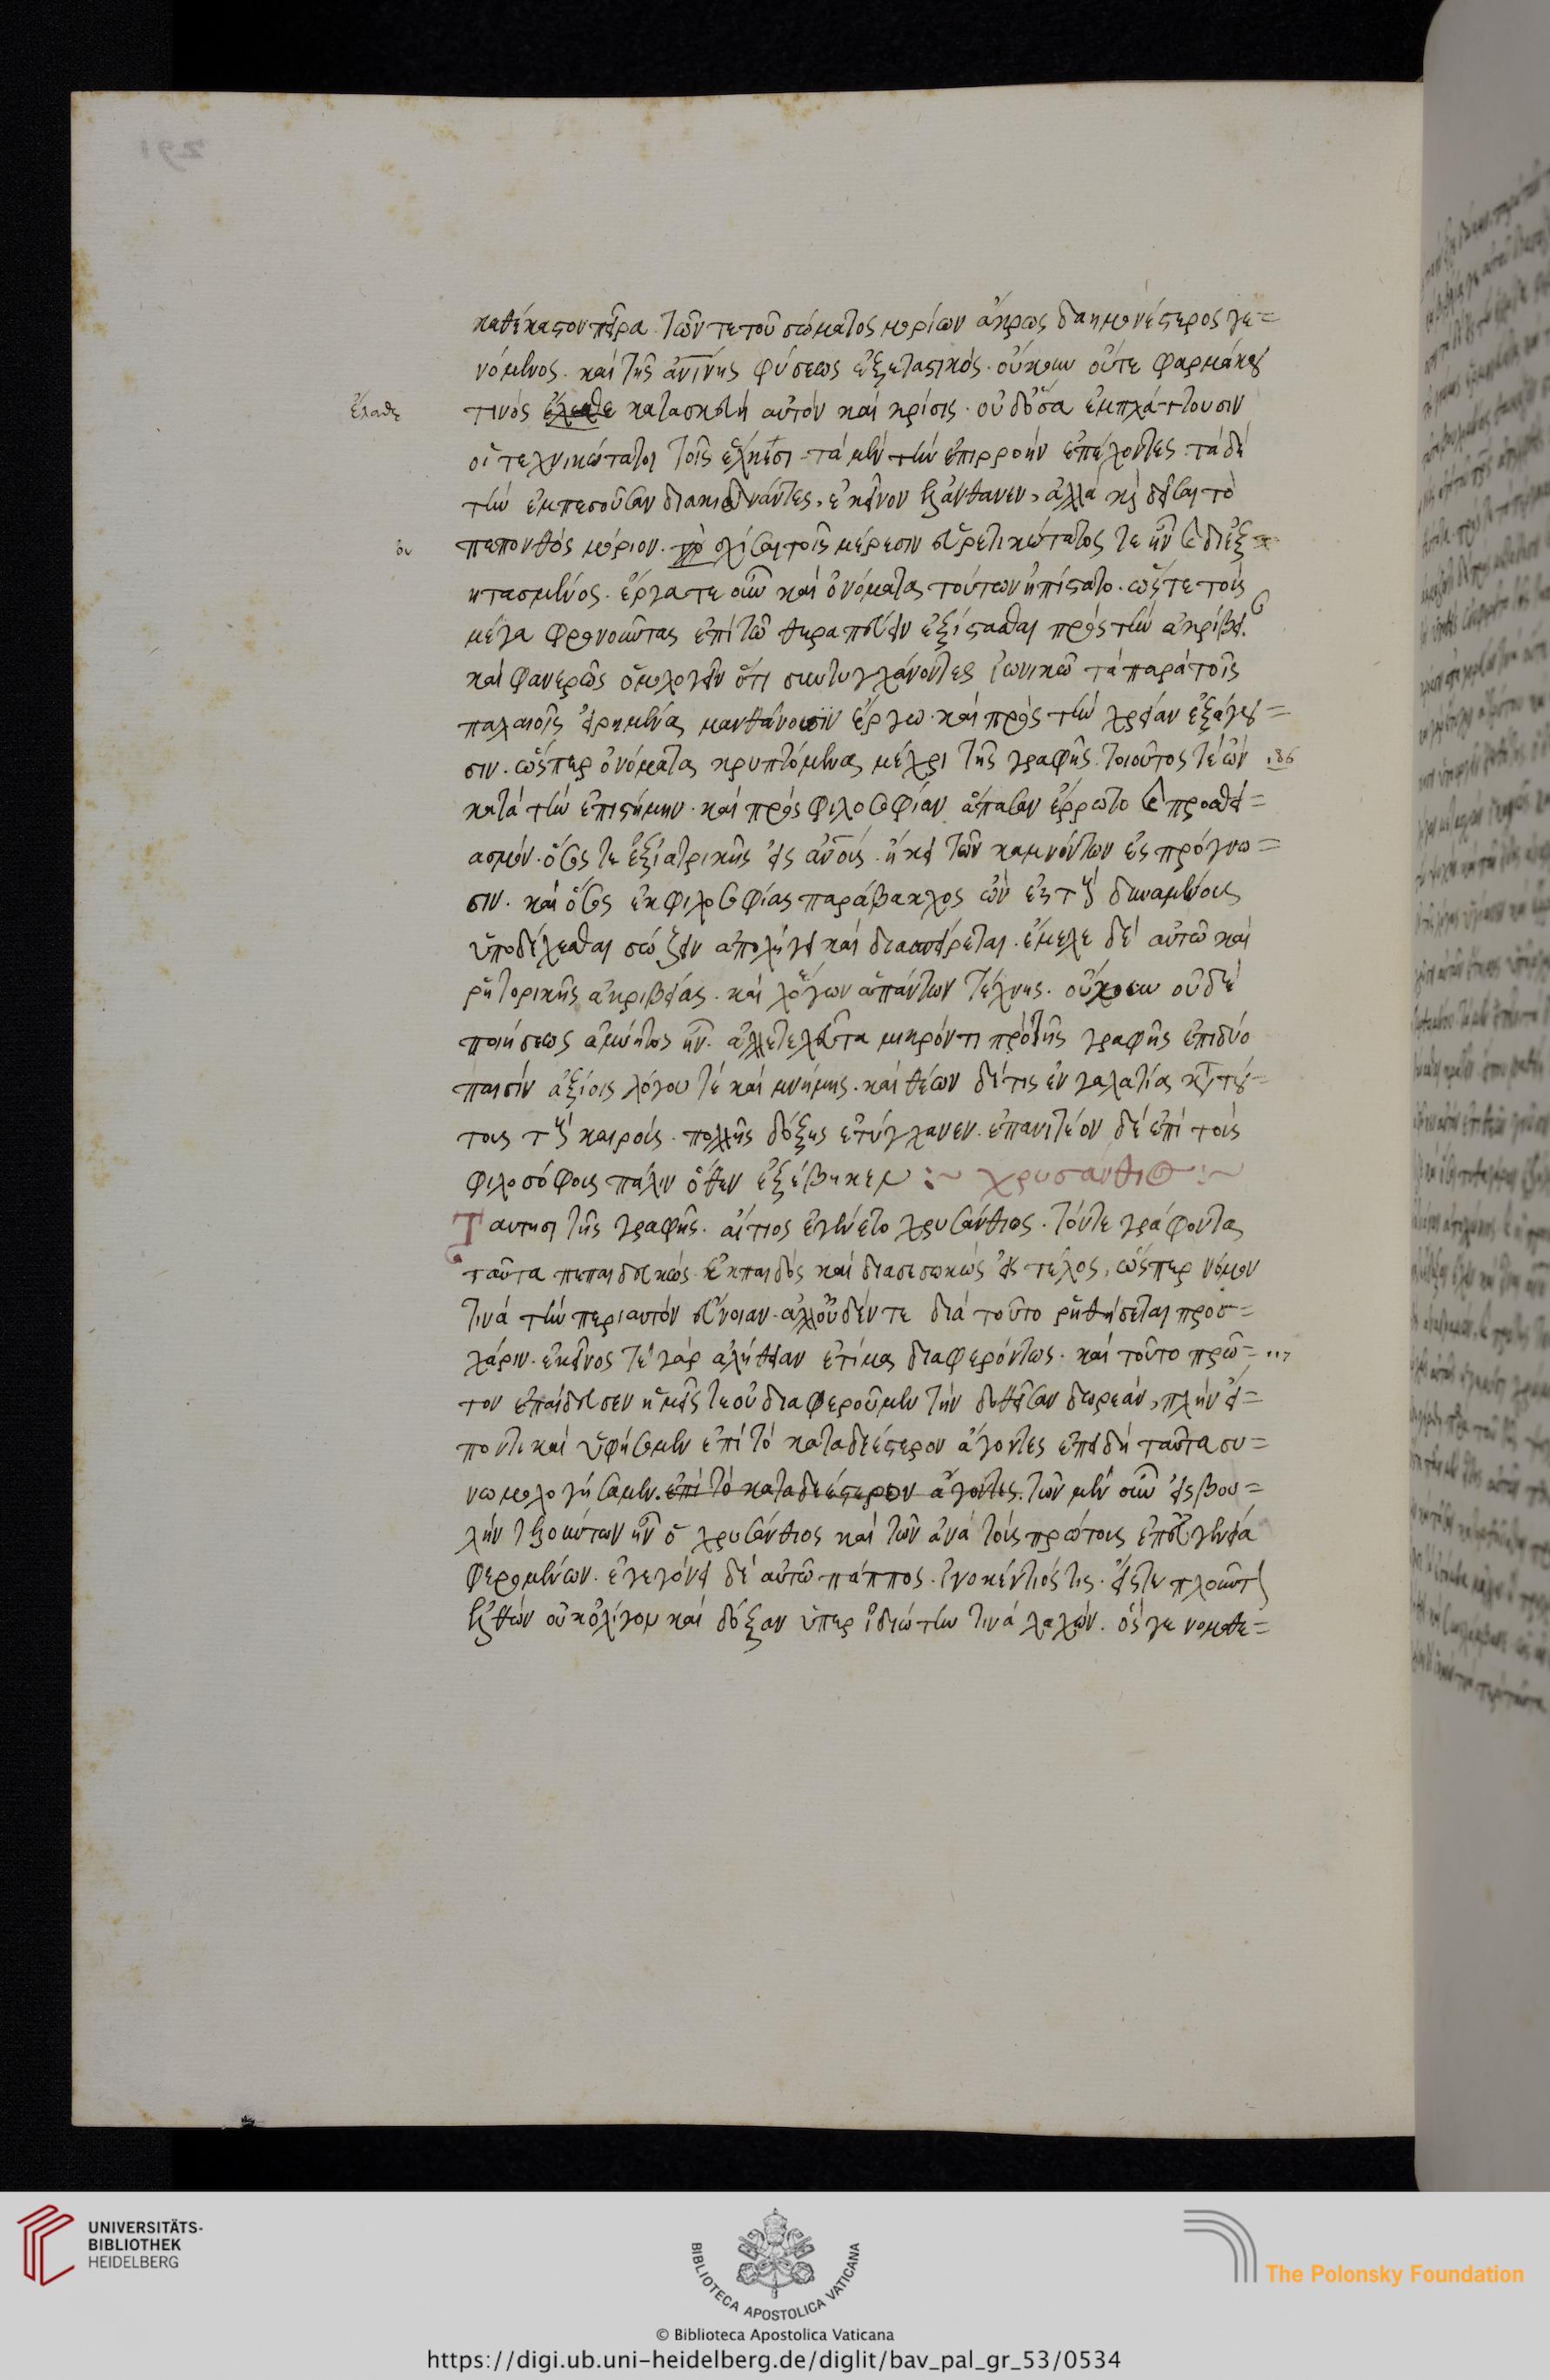 291
καθέκαστον πεῖρα. τῶν τε τοῦ σώματος μορίων ἄκρως δαημονέστερος γε=
νόμενος. καὶ τῆς ἀνίνης φύσεως ἐξεταστικός. οὔκουν οὔτε φαρμάκου
ἔλαθε
τινός ἔλαθε κατασκευὴ αὐτόν καὶ κρίσις. οὐδ' ὅσα ἐμπλάττουσιν
οἱ τεχνικώτατοι τοῖς ἕλκεσι. τὰ μὲν τὴν ἐπιρροήν ἐπέχοντες. τὰ δὲ
τὴν ἐμπεσοῦσαν διασκιδνάντες, ἐκεῖνον ἐλάνθανεν, ἀλλὰ καὶ δῆσαι τὸ
ον
πεπονθός μόριον. σχίσαι τοῖς μέρεσιν εὑρετικώτατος τε ἦν καὶ διεξ
ητασμένος. ἔργα τε οὖν καὶ ὀνόματα τούτων ἠπίστατο. ὥστε τοὺς
μέγα φρονοῦντας ἐπὶ τῷ θεραπεύειν ἐξίστασθαι πρὸς τὴν ἀκρίβειαν.
καὶ φανερῶς ὁμολογεῖν ὅτι συντυγχάνοντες ἰωνικῷ τὰ παρὰ τοῖς
παλαιοῖς εἰρημένα μανθάνουσιν ἔργω. καὶ πρὸς τὴν χρείαν ἐξάγου=
σιν. ὥσπερ ὀνόματα κρυπτόμενα μέχρι τῆς γραφῆς. τοιοῦτος τε ὢν 186
κατὰ τὴν ἐπιστήμην. καὶ πρὸς φιλοσοφίαν ἅπασαν ἔρρωτο καὶ προσθε=
ασμόν. ὅσος τε ἐξ ἰατρικῆς εἰς ἀνους. ἥκει τῶν καμνόντων ἐς πρόγνω=
σιν. καὶ ὅσος ἐκ φιλοσοφίας παράβακχος ὢν ἐς τοὺς δυναμένους
ὑποδέχεσθαι σώζειν ἀπολήγει καὶ διασπείρεται. ἔμελε δὲ αὐτῷ καὶ
ῥητορικῆς ἀκριβείας. καὶ λόγων ἁπάντων τέχνης. οὔκουν οὐδὲ
ποιήσεως ἀμύητος ἦν. ἀλλ' ἐτελεύτα μικρόν τι πρὸ τῆς γραφῆς ἐπὶ δύο
παισίν ἀξίοις λόγου τε καὶ μνήμης. καὶ θέων δέ τις ἐν γαλατίᾳ κατὰ τού=
τους τοὺς καιρούς. πολλῆς δόξης ἐτύγχανεν. ἐπανιτέον δὲ ἐπὶ τοὺς
φιλοσόφους πάλιν ὅθεν ἐξέβημεν :~ χρυσάνθιος :~
Ταυτησὶ τῆς γραφῆς. αἴτιος ἐγένετο χρυσάνθιος. τόν τε γράφοντα
ταῦτα πεπαιδευκώς ἐκ παιδός καὶ διασεσωκώς εἰς τέλος, ὥσπερ νόμον
τινά τὴν περὶ αὐτόν εὔνοιαν. ἀλλ' οὐδέν τε διὰ τοῦτο ῥηθήσεται πρὸς=
χάριν. ἐκεῖνος τε γὰρ ἀλήθειαν ἐτίμα διαφερόντως. καὶ τοῦτο πρῶ=
τον ἐπαίδευσεν ἡμεῖς τε οὐ διαφεροῦμεν τὴν δοθεῖσαν δωρεάν, πλὴν εἴ=
πού τι καὶ ὑφήσομεν ἐπὶ τὸ καταδεέστερον ἄγοντες ἐπειδὴ ταῦτα συ=
νωμολογήσαμεν. ἐπὶ τὸ καταδεέστερον ἄγοντες. τῶν μὲν οὖν εἰς βου=
λὴν τελούντων ἦν ὁ χρυσάνθιος καὶ τῶν ἀνὰ τοὺς πρώτους ἐπ' εὐγενείᾳ
φερομένων. ἐγεγόνει δὲ αὐτῷ πάππος. ἰνοκέντιός τις. εἴς τε πλοῦτον
ἐλθὼν οὐκ ὀλίγον καὶ δόξαν ὑπὲρ ἰδιώτην τινὰ λαχών. ὅς γε νομοθε=
UNIVERSITÄTS-
BIBLIOTHEK
HEIDELBERG
BIBLIOTECA APOSTOLICA VATICANA
The Polonsky Foundation
© Biblioteca Apostolica Vaticana
https://digi.ub.uni-heidelberg.de/diglit/bav_pal_gr_53/0534